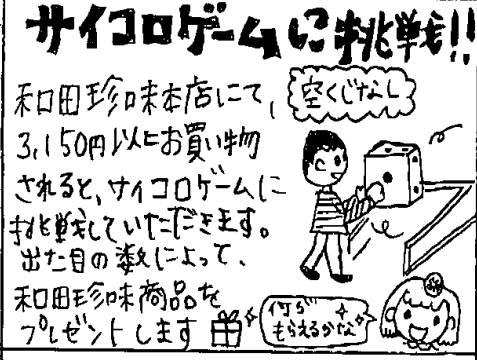 サイコロゲームに挑戦!!
和田珍味本店にて、
3,150円以上お買い物
されると、サイコロゲームに
挑戦していただきます。
出た目の数によって、
和田珍味商品を
プレゼントします
空くじなし
何が
もらえるかな